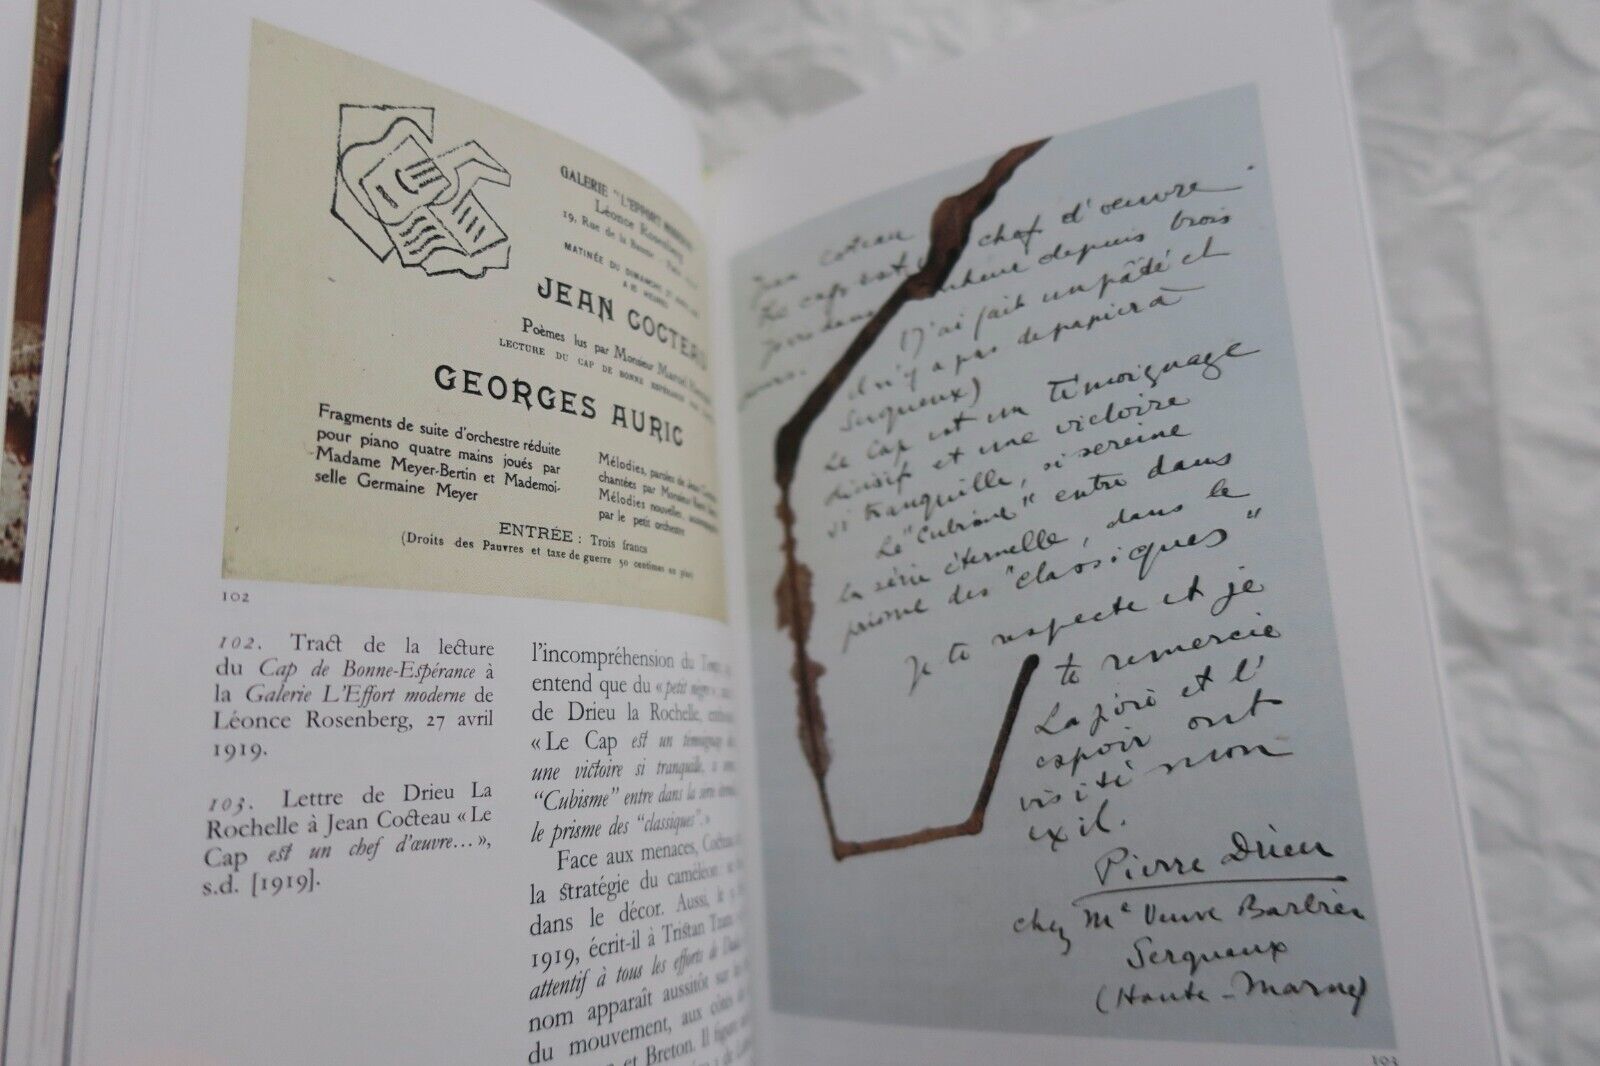 GALERIE "L'EFFORT
Léonce Rosenberg
19, Rue de la
MATINÉE DU DIMANCHE
JEAN COCTEAU
Poèmes lus par Monsieur Marcel
LECTURE DU CAP DE BONNE ESPÉRANCE
GEORGES AURIC
Fragments de suite d'orchestre réduite
pour piano quatre mains joués par
Madame Meyer-Bertin et Mademoi-
selle Germaine Meyer
Mélodies, paroles de Jean
chantées par Monsieur
Mélodies nouvelles,
par le petit orchestre
ENTRÉE : Trois francs
(Droits des Pauvres et taxe de guerre 50 centimes en plus)
102
102. Tract de la lecture
du Cap de Bonne-Espérance à
la Galerie L'Effort moderne de
Léonce Rosenberg, 27 avril
1919.
103. Lettre de Drieu La
Rochelle à Jean Cocteau « Le
Cap est un chef d'œuvre... »,
s.d. [1919].
l'incompréhension du
entend que du « petit
de Drieu la Rochelle,
« Le Cap est un témoignage
une victoire si tranquille,
"Cubisme" entre dans la série
le prisme des "classiques". »
Face aux menaces, Cocteau
la stratégie du caméléon :
dans le décor. Aussi, le
1919, écrit-il à Tristan
attentif à tous les efforts de
nom apparaît aussitôt sur
du mouvement, aux côtés
et Breton. Il figure
Jean Cocteau
Le cap est chef d'œuvre.
depuis trois
jours. (J'ai fait un pâté et
il n'y a pas de papier à
Serqueux)
Le Cap est un témoignage
décisif et une victoire
si tranquille, si sereine
Le "Cubisme" entre dans
la série éternelle, dans le
prisme des "classiques"
Je te respecte et je
te remercie
La joie et l'
espoir ont
visité mon
exil.
Pierre Drieu
chez Me Veuve Barbier
Serqueux
(Haute-Marne)
103